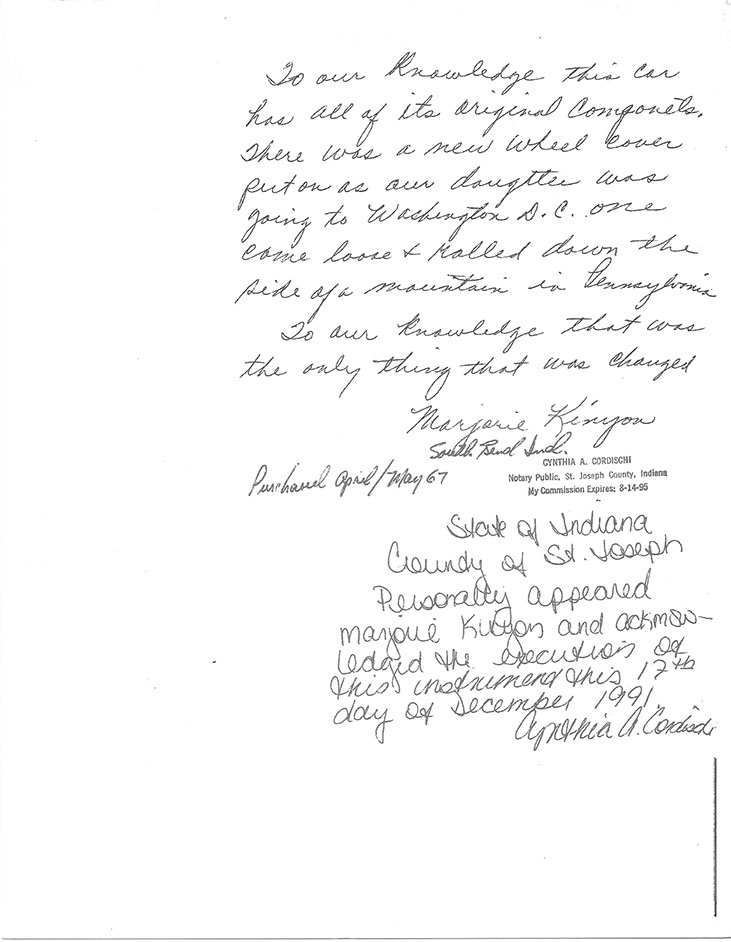 To our Knowledge this car
has all of its original Componets.
There was a new wheel cover
put on as our daugttee was
going to Washington D.C. one
come loose & rolled down the
side of a mountain in Pennsylvania
To our knowledge that was
the only thing that was changed
Marjorie Kinyon
South Bend Ind.
CYNTHIA A. CORDISCHI
Purchased April/May 67
Notary Public, St. Joseph County, Indiana
My Commission Expires: 8-14-95
State of Indiana
County of St. Joseph
Personally appeared
Marjorie Kinyon and acknow-
ledged the execution of
this instrument this 17th
day of December 1991
Cynthia A. Cordischi